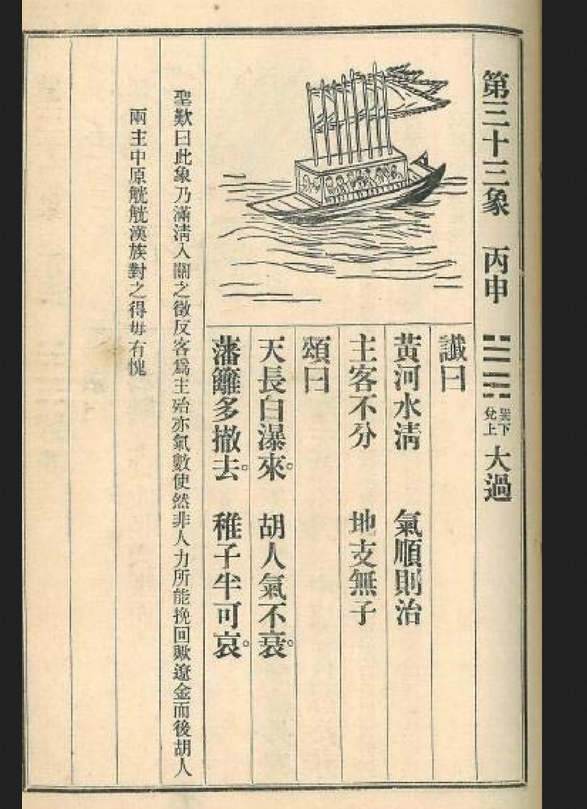 第三十三象 丙申 巽下 兌上 大過
讖曰
黃河水清 氣順則治
主客不分 地支無子
頌曰
天長白瀑來。 胡人氣不衰。
藩籬多撤去。 稚子半可哀。
聖歎曰此象乃滿清入關之徵反客爲主殆亦氣數使然非人力所能挽回歟遼金而後胡人
兩主中原觥觥漢族對之得毋有愧